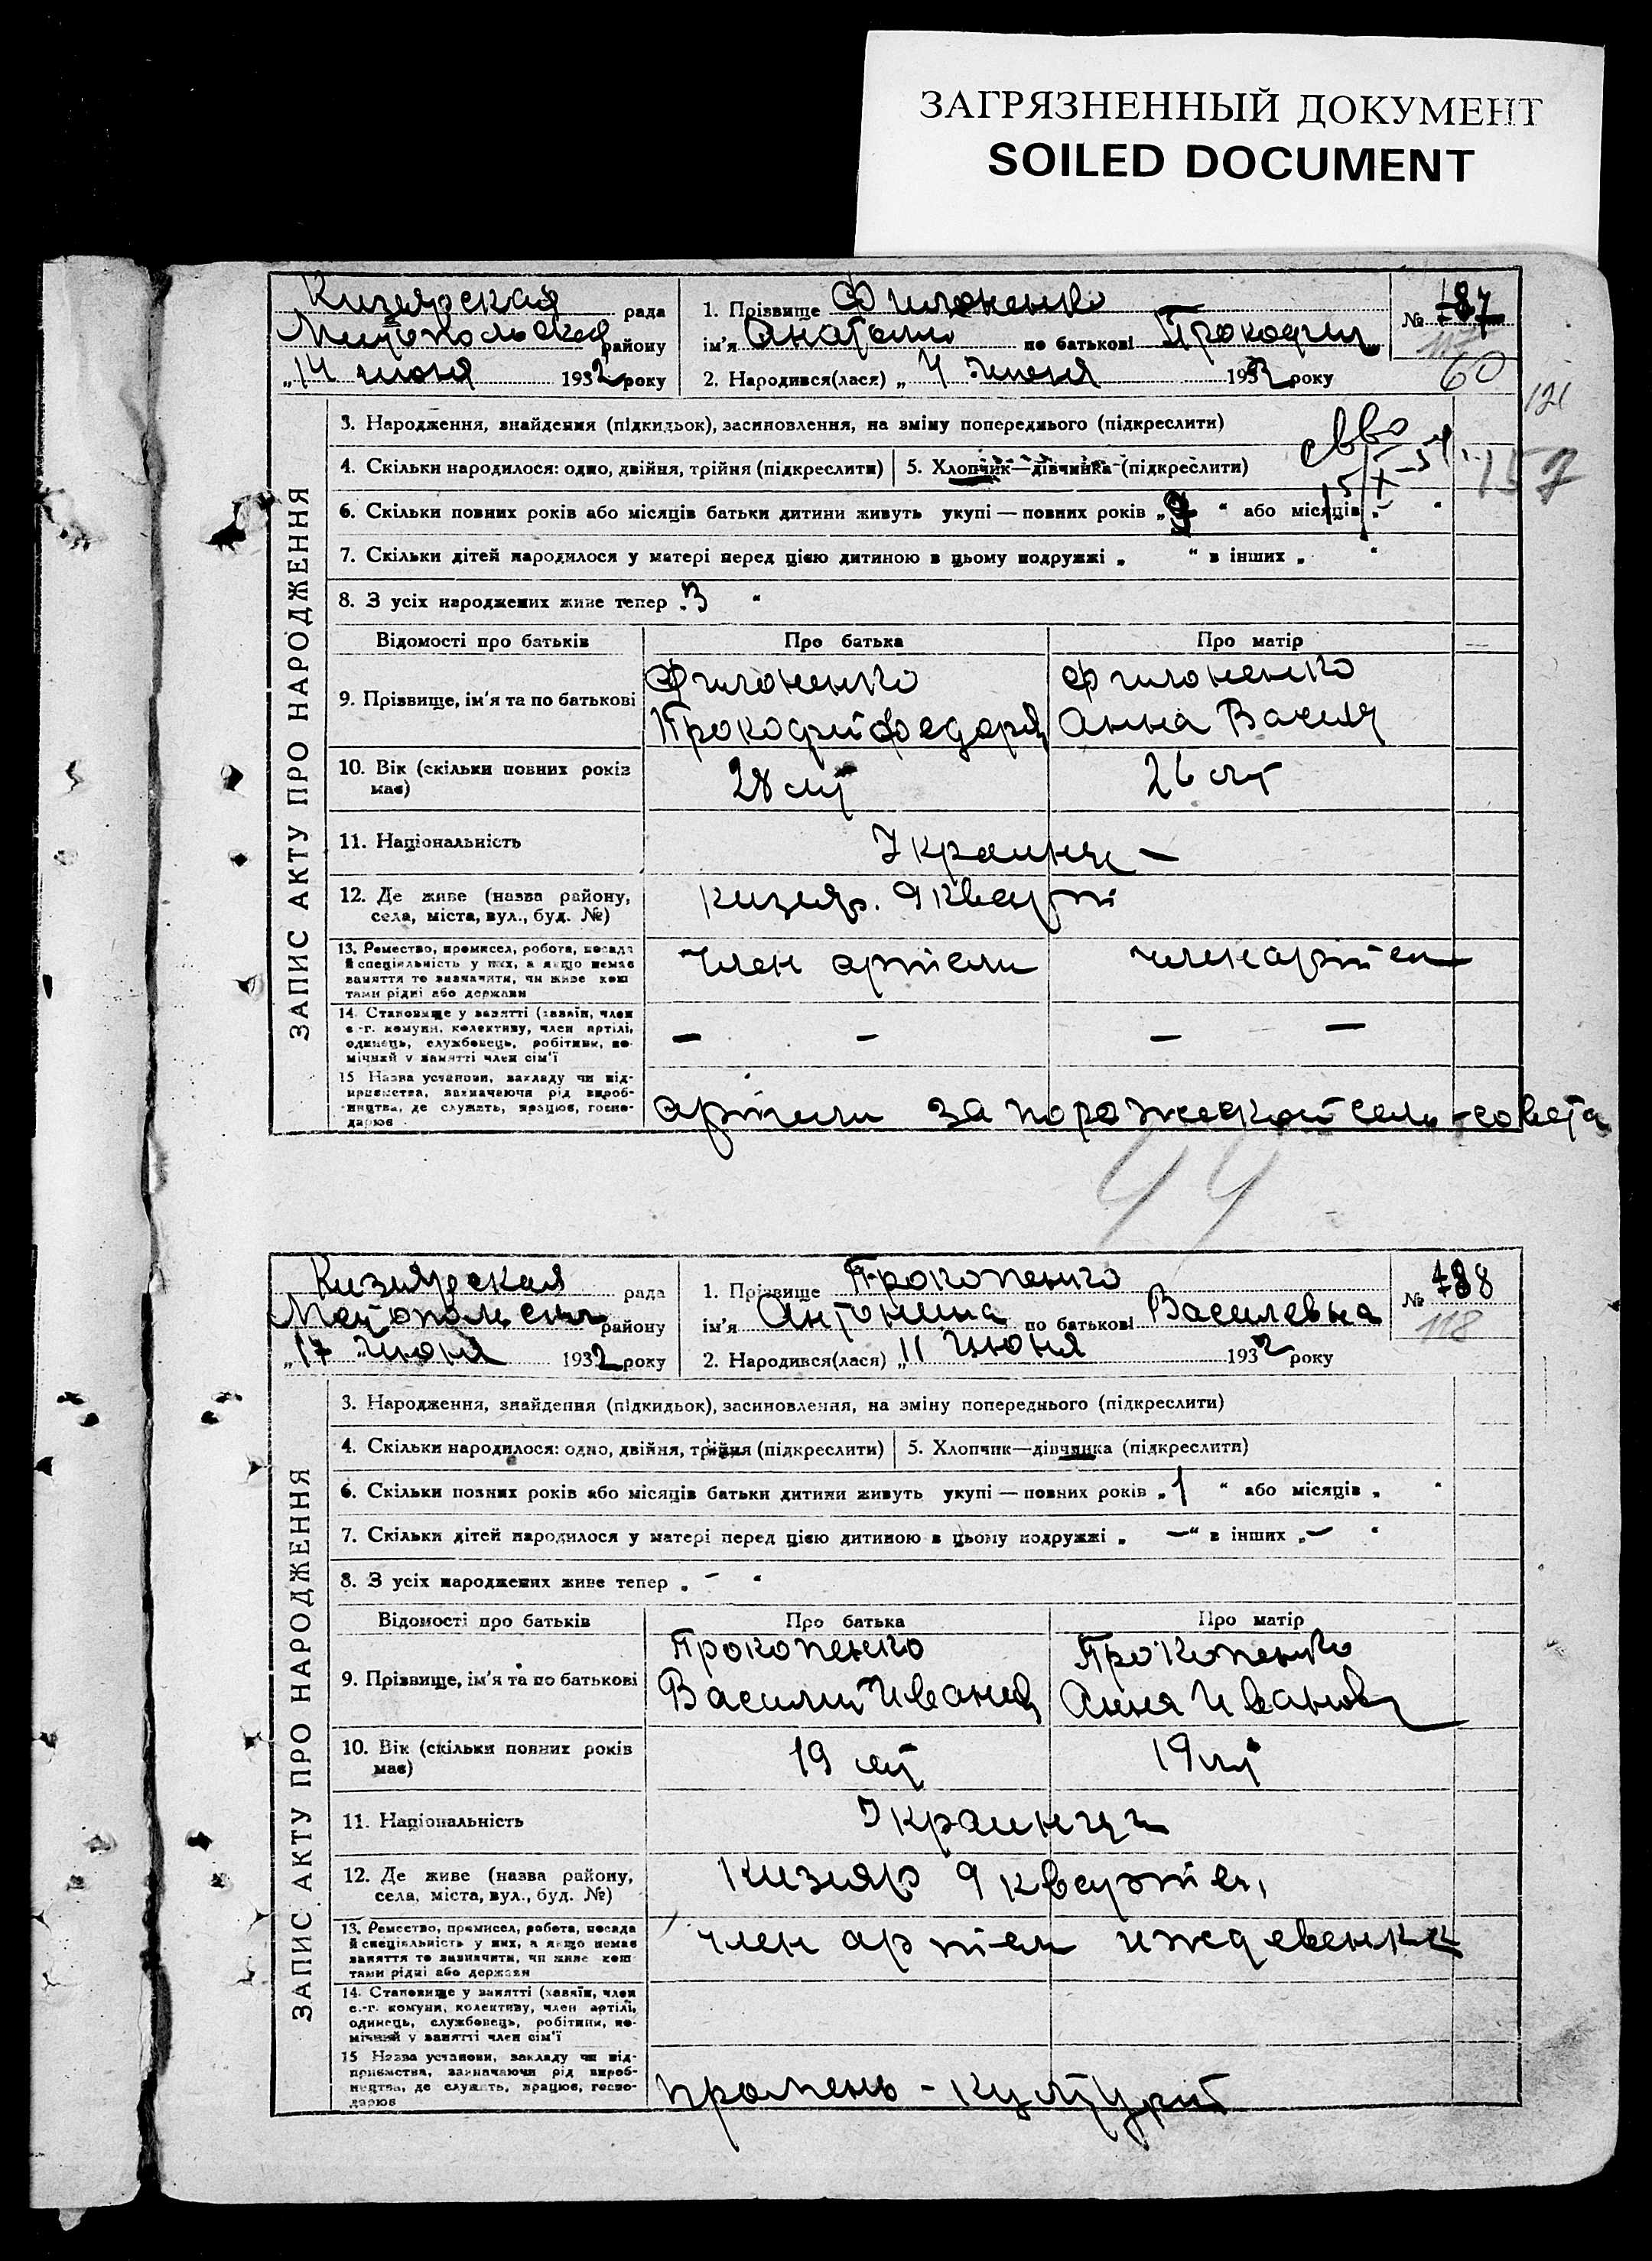 ЗАГРЯЗНЕННЫЙ ДОКУМЕНТ
SOILED DOCUMENT
Кизиярская рада
району
„14 июня 1932 року
1. Прізвище Филоненко
ім'я Анатолий по батькові Прокофий
2. Народився(лася) „4 июня 1932 року
№ 87
117
60
121
157
ЗАПИС АКТУ ПРО НАРОДЖЕННЯ
3. Народження, знайдення (підкидьок), засиновлення, на зміну попереднього (підкреслити)
4. Скільки народилося: одно, двійня, трійня (підкреслити)
5. Хлопчик—дівчинка (підкреслити)
6. Скільки повних років або місяців батьки дитини живуть укупі — повних років „9 “ або місяців „ “
7. Скільки дітей народилося у матері перед цією дитиною в цьому подружжі „ “ в інших „ “
8. З усіх народжених живе тепер „3 “
Відомості про батьків
Про батька
Про матір
9. Прізвище, ім'я та по батькові
Филоненко
Прокофий Федоро
Филоненко
Анна Васил
10. Вік (скільки повних років має)
28 лет
26 лет
11. Національність
Украинцы –
12. Де живе (назва району,
села, міста, вул., буд. №)
Кизияр. 9 кварт
13. Ремество, промисел, робота, посада
й спеціяльність у них, а якщо немає
заняття то зазначити, чи живе кош
тами рідні або держави
член артели
член артел
14. Становище у занятті (хазяїн, член
с.-г. комуни, колективу, член артілі,
одинець, службовець, робітник, по-
мічний у занятті член сім'ї
– – – –
15 Назва установи, закладу чи під-
приємства, зазначаючи рід вироб-
ництва, де служать, працює, госпо-
дарює
артели Запорожской сель-совета
44
Кизиярская рада
району
„17 июня 1932 року
1. Прізвище Прокопенко
ім'я Антонина по батькові Василевна
2. Народився(лася) „11 июня 1932 року
№ 88
118
ЗАПИС АКТУ ПРО НАРОДЖЕННЯ
3. Народження, знайдення (підкидьок), засиновлення, на зміну попереднього (підкреслити)
4. Скільки народилося: одно, двійня, трійня (підкреслити)
5. Хлопчик—дівчинка (підкреслити)
6. Скільки повних років або місяців батьки дитини живуть укупі — повних років „1 “ або місяців „ “
7. Скільки дітей народилося у матері перед цією дитиною в цьому подружжі „ –“ в інших „– “
8. З усіх народжених живе тепер „ – “
Відомості про батьків
Про батька
Про матір
9. Прізвище, ім'я та по батькові
Прокопенко
Василий Иванов
Прокопенко
Анна Иванов
10. Вік (скільки повних років
має)
19 лет
19 лет
11. Національність
Украинцы
12. Де живе (назва району,
села, міста, вул., буд. №)
Кизияр 9 квартел
13. Ремество, промисел, робота, посада
й спеціяльність у них, а якщо немає
заняття то зазначити, чи живе кош
тами рідні або держави
член артел иждевенка
14. Становище у занятті (хазяїн, член
с.-г. комуни, колективу, член артілі,
одинець, службовець, робітник, по-
мічний у занятті член сім'ї
15 Назва установи, закладу чи під-
приємства, зазначаючи рід вироб-
ництва, де служать, працює, госпо-
дарює
промень - культури